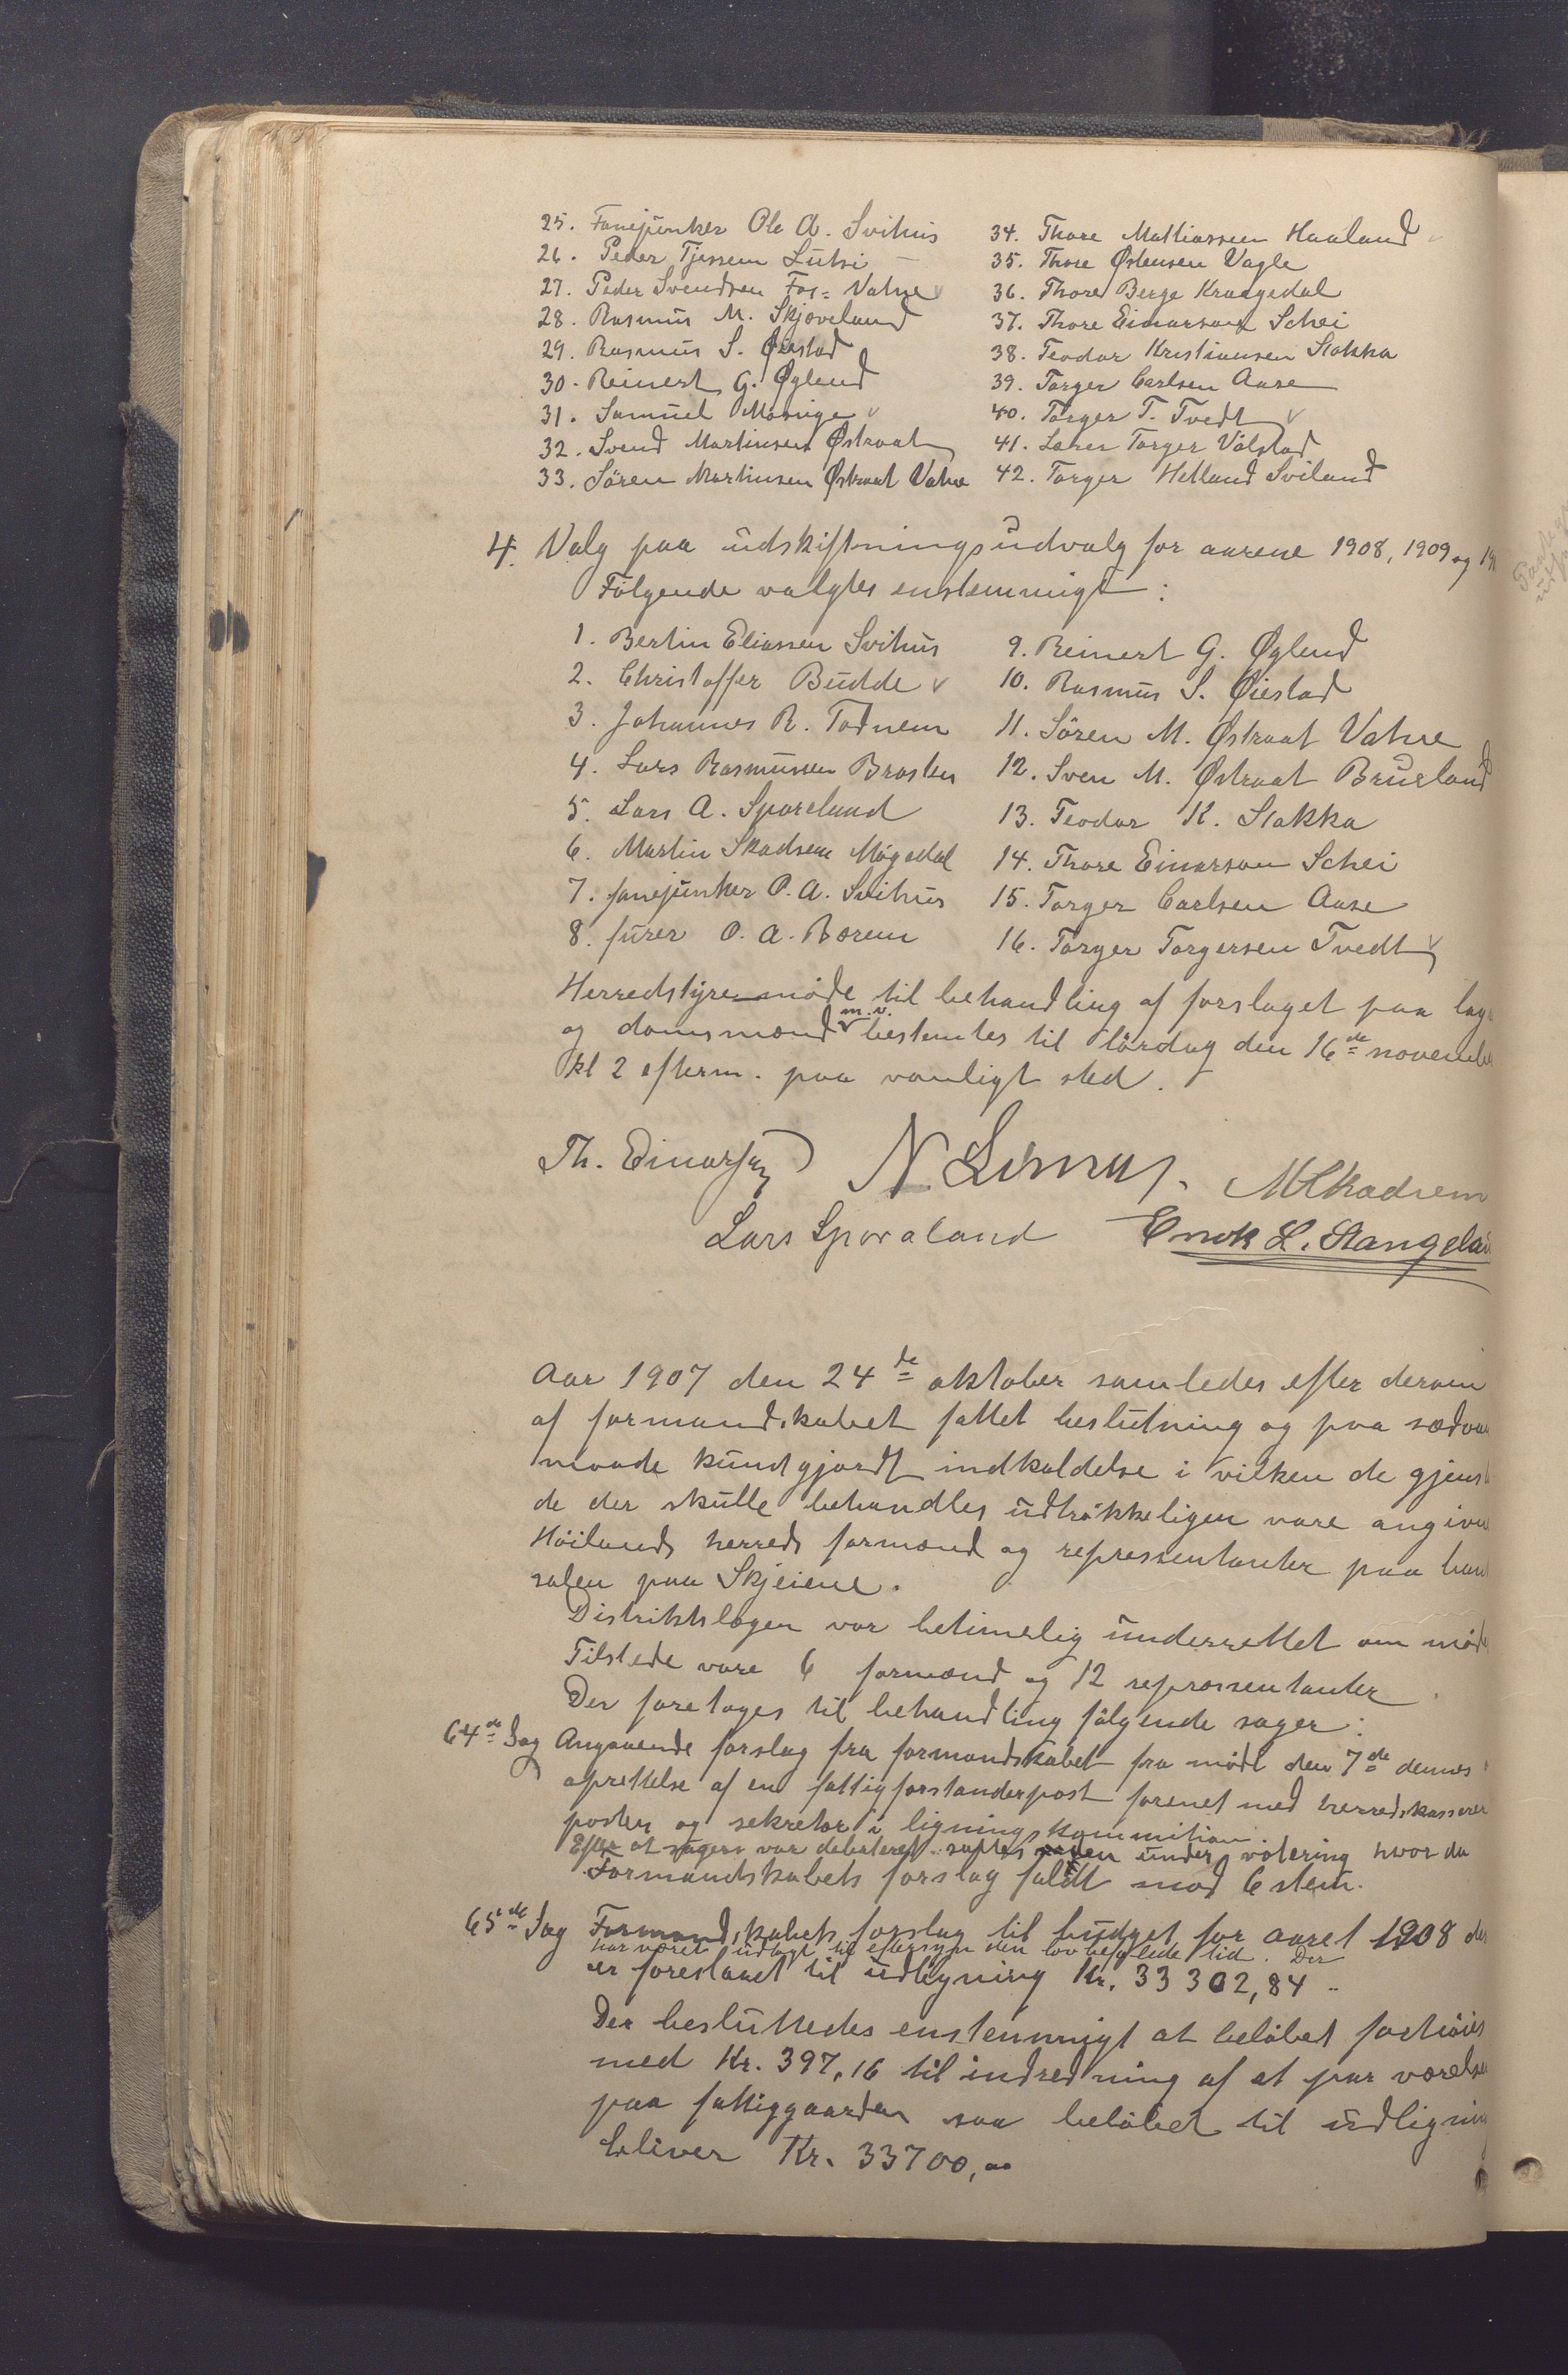 25. Fanejunker Ole A. Svihus
26. Peder Tjessem Lutsi
27. Peder Svendsen Fos=Vatne
28. Rasmus M. Skjæveland
29. Rasmus S. Øiestad
30. Reinert G. Øglend
31. Samuel Mæsnige
32. Svend Martinsen Østraat
33. Sören Martinsen Østraat Vatne
34. Thore Mathiassen Haaland
35. Thore Østensen Vagle
36. Thore Berge Kraagedal
37. Thore Einarsen Schei
38. Teodor Kristiansen Stokka
39. Torger Carlsen Aase
40. Torger T. Tvedt
41. Lærer Torger Válstad
42. Torger Helland Sviland
4. Valg paa udskiftningsudvalg for aarene 1908, 1909 og 19
Fölgende valgtes enstemmigt:
1. Bertin Eliassen Svihus
2. Christoffer Budde
3. Johannes R. Todnem
4. Lars Rasmussen Brasten
5. Lars A. Sporeland
6. Martin Skadsem Mógedal
7. fanejunker O. A. Svihus
8. furer O. A. Borem
9. Reinert G. Øglend
10. Rasmus S. Øiestad
11. Sören M. Østraat Vatne
12. Sven M. Østraat Brueland
13. Teodor K. Stokka
14. Thore Einarsen Schei
15. Torger Carlsen Aase
16. Torger Torgersen Tvedt
Herredstyremöde til behandling af forslaget paa lag
og domsmænd m. v. bestemtes til lördag den 16de novembe
kl 2 efterm. paa vanligt sted.
Th. Einarsen N. Limas. M Skadsem
Lars Sporaland Enok L. Stangelan
Aar 1907 den 24de oktober samledes efter derom
af formandskabet fattet beslutning og paa sædva
maade kundgjordt indkaldelse i vilken de gjenst
de der skulle behandles udtrökkeligen vare angivn
Höilands herreds formænd og repressentanter paa
salen paa Skjeiene.
Distriktslægen var betimelig underrettet om möd
Tilstede vare 6 formænd og 12 repræssentanter
Der foretoges til behandling fölgende sager:
64de Sag Angaaende forslag fra formandskabet fra möde den 7de dennes
oprettelse af en fattigforstanderpost forenet med herredskasserer
posten og sekretær i ligningskommition.
Efter at sagen var debateret sattes sagen under votering hvor da
Formandskabets forslag faldt mod 6 stem.
65de Sag Formandskabets forslag til budget for aaret 1908 der
har været udlagt til eftersyn den lovbefalede tid. Der
er foreslaaet til udligning Kr. 33 302,84 -
Der besluttedes enstemmigt at belöbet forhöies
med Kr. 397,16 til indredning af et par værelse
paa fattiggaarden saa belöbet til udligning
bliver Kr. 33700,00